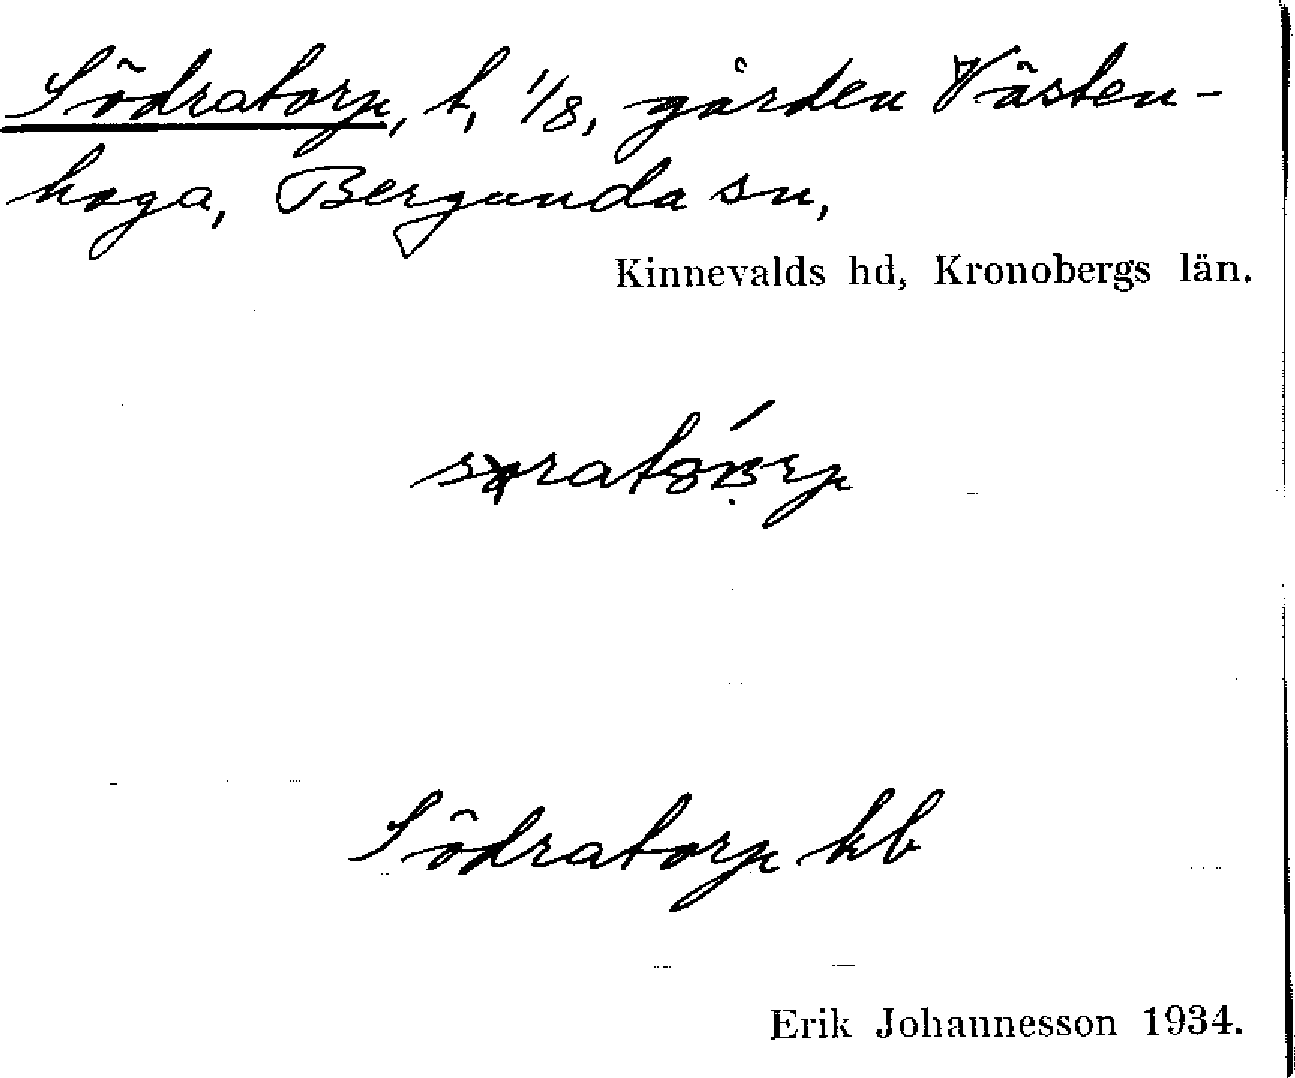 Södratorp, t, 1/8, gården Västen-
hoga, Bergunda sn,
Kinnevalds hd, Kronobergs län.
Södratorp kb
Erik Johannesson 1934.